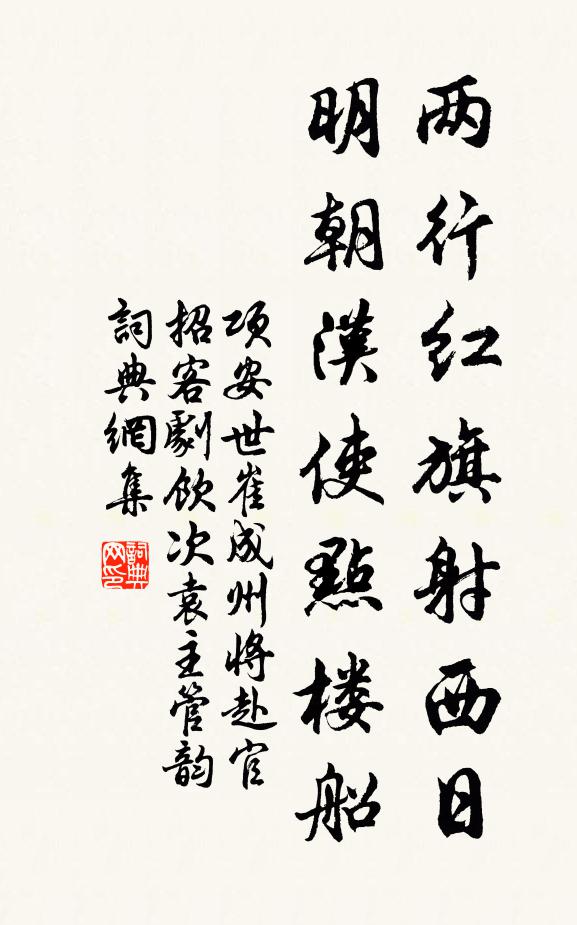 两行红旗射西日
明朝漢使點楼船
项安世崔成州将赴官
招客劇饮次袁主管韵
詞典網集
詞典网印